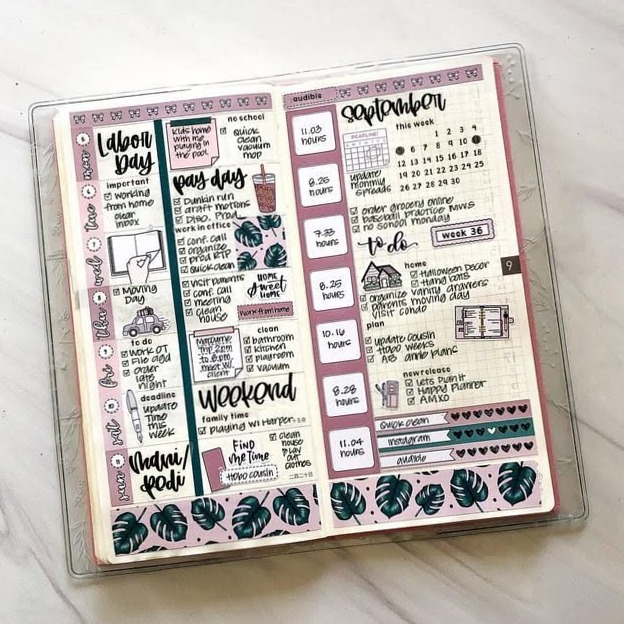 mon
6
Labor
Day
kids home
with me,
playing in
the pool
no school
Quick
clean
vacuum
mop
tue
important
working
from home
clear
inbox
pay day
Dunkin run
draft motions
Disc. Prod.
work in office
wed
conf. call
organize
prod RTP
quick clean
thu
moving
Day
visit parents
conf. call
meeting
clean
house
HOME
sweet
HOME
work from home
fri
to do
work OT
File add
order
late
night
meeting w/
client
clean
bathroom
kitchen
playroom
vacuum
sat
deadline
update
time
this
week
weekend
family time
playing w/ Harper
sun
Mani/
Pedi
FIND
Me Time
Hobo cousin
clean
house
lay
out
clothes
audible
september
11.03
hours
8.25
hours
7.33
hours
8.25
hours
10.16
hours
8.28
hours
11.04
hours
DEADLINE!
update
monthly
spreads
this week
1 2 3 4
5 6 7 8 9 10 11
12 13 14 15 16 17 18
19 20 21 22 23 24 25
26 27 28 29 30
order grocery online
baseball practice M.W.S
no school monday
to do
week 36
9
home
Halloween Decor
Hang bats
organize vanity drawers
parents moving day
visit condo
plan
update cousin
Hobo weeks
new release
Lets Plan It
Happy Planner
AMXO
Quick clean
instagram
audible